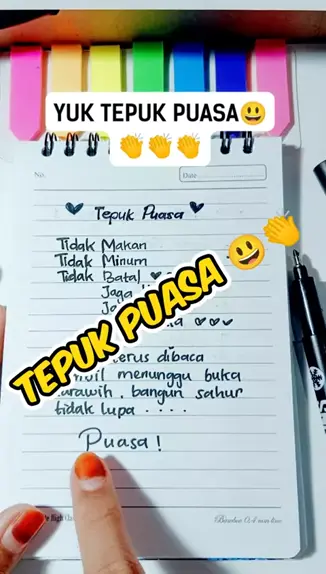 YUK TEPUK PUASA😃
👏👏👏
No.
Date
Tepuk Puasa
Tidak Makan
Tidak Minum
Tidak Batal
Jaga
TEPUK PUASA 😃👏
terus dibaca
menunggu buka
bangun sahur
tidak lupa ....
Puasa!